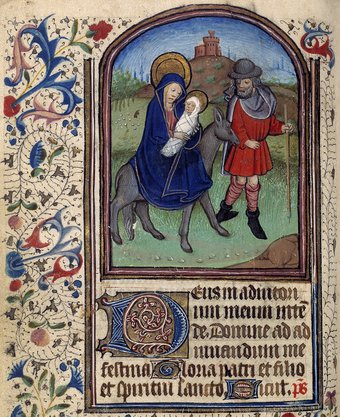 Deus in adiutori
um meum inte
de. Domine ad ad
iuuendum me
festina Gloria patri et filio
et spiritui sancto Sicut. ps